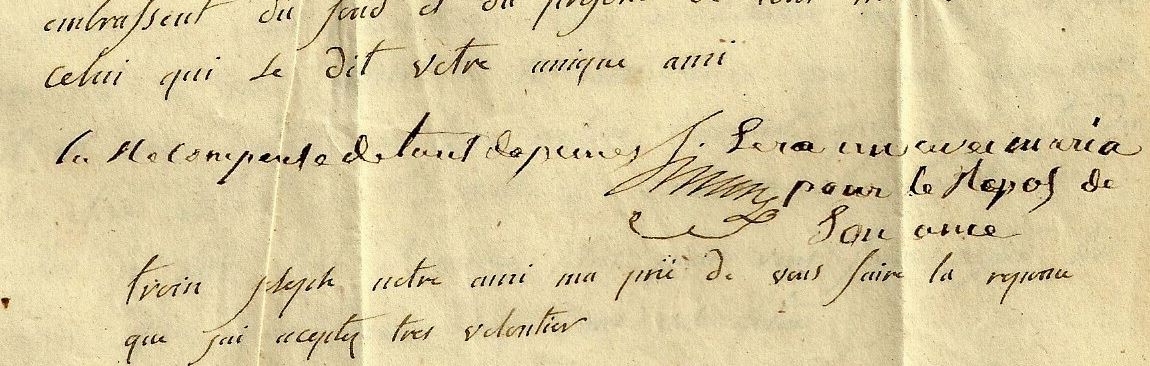 embrassent du fond et du
celui qui se dit votre unique ami
la Recompense de tant de peines Sera un ave maria
pour le Repos de
Son ame
notre ami ma prié de vous faire la reponse
que jai accepter tres volontier